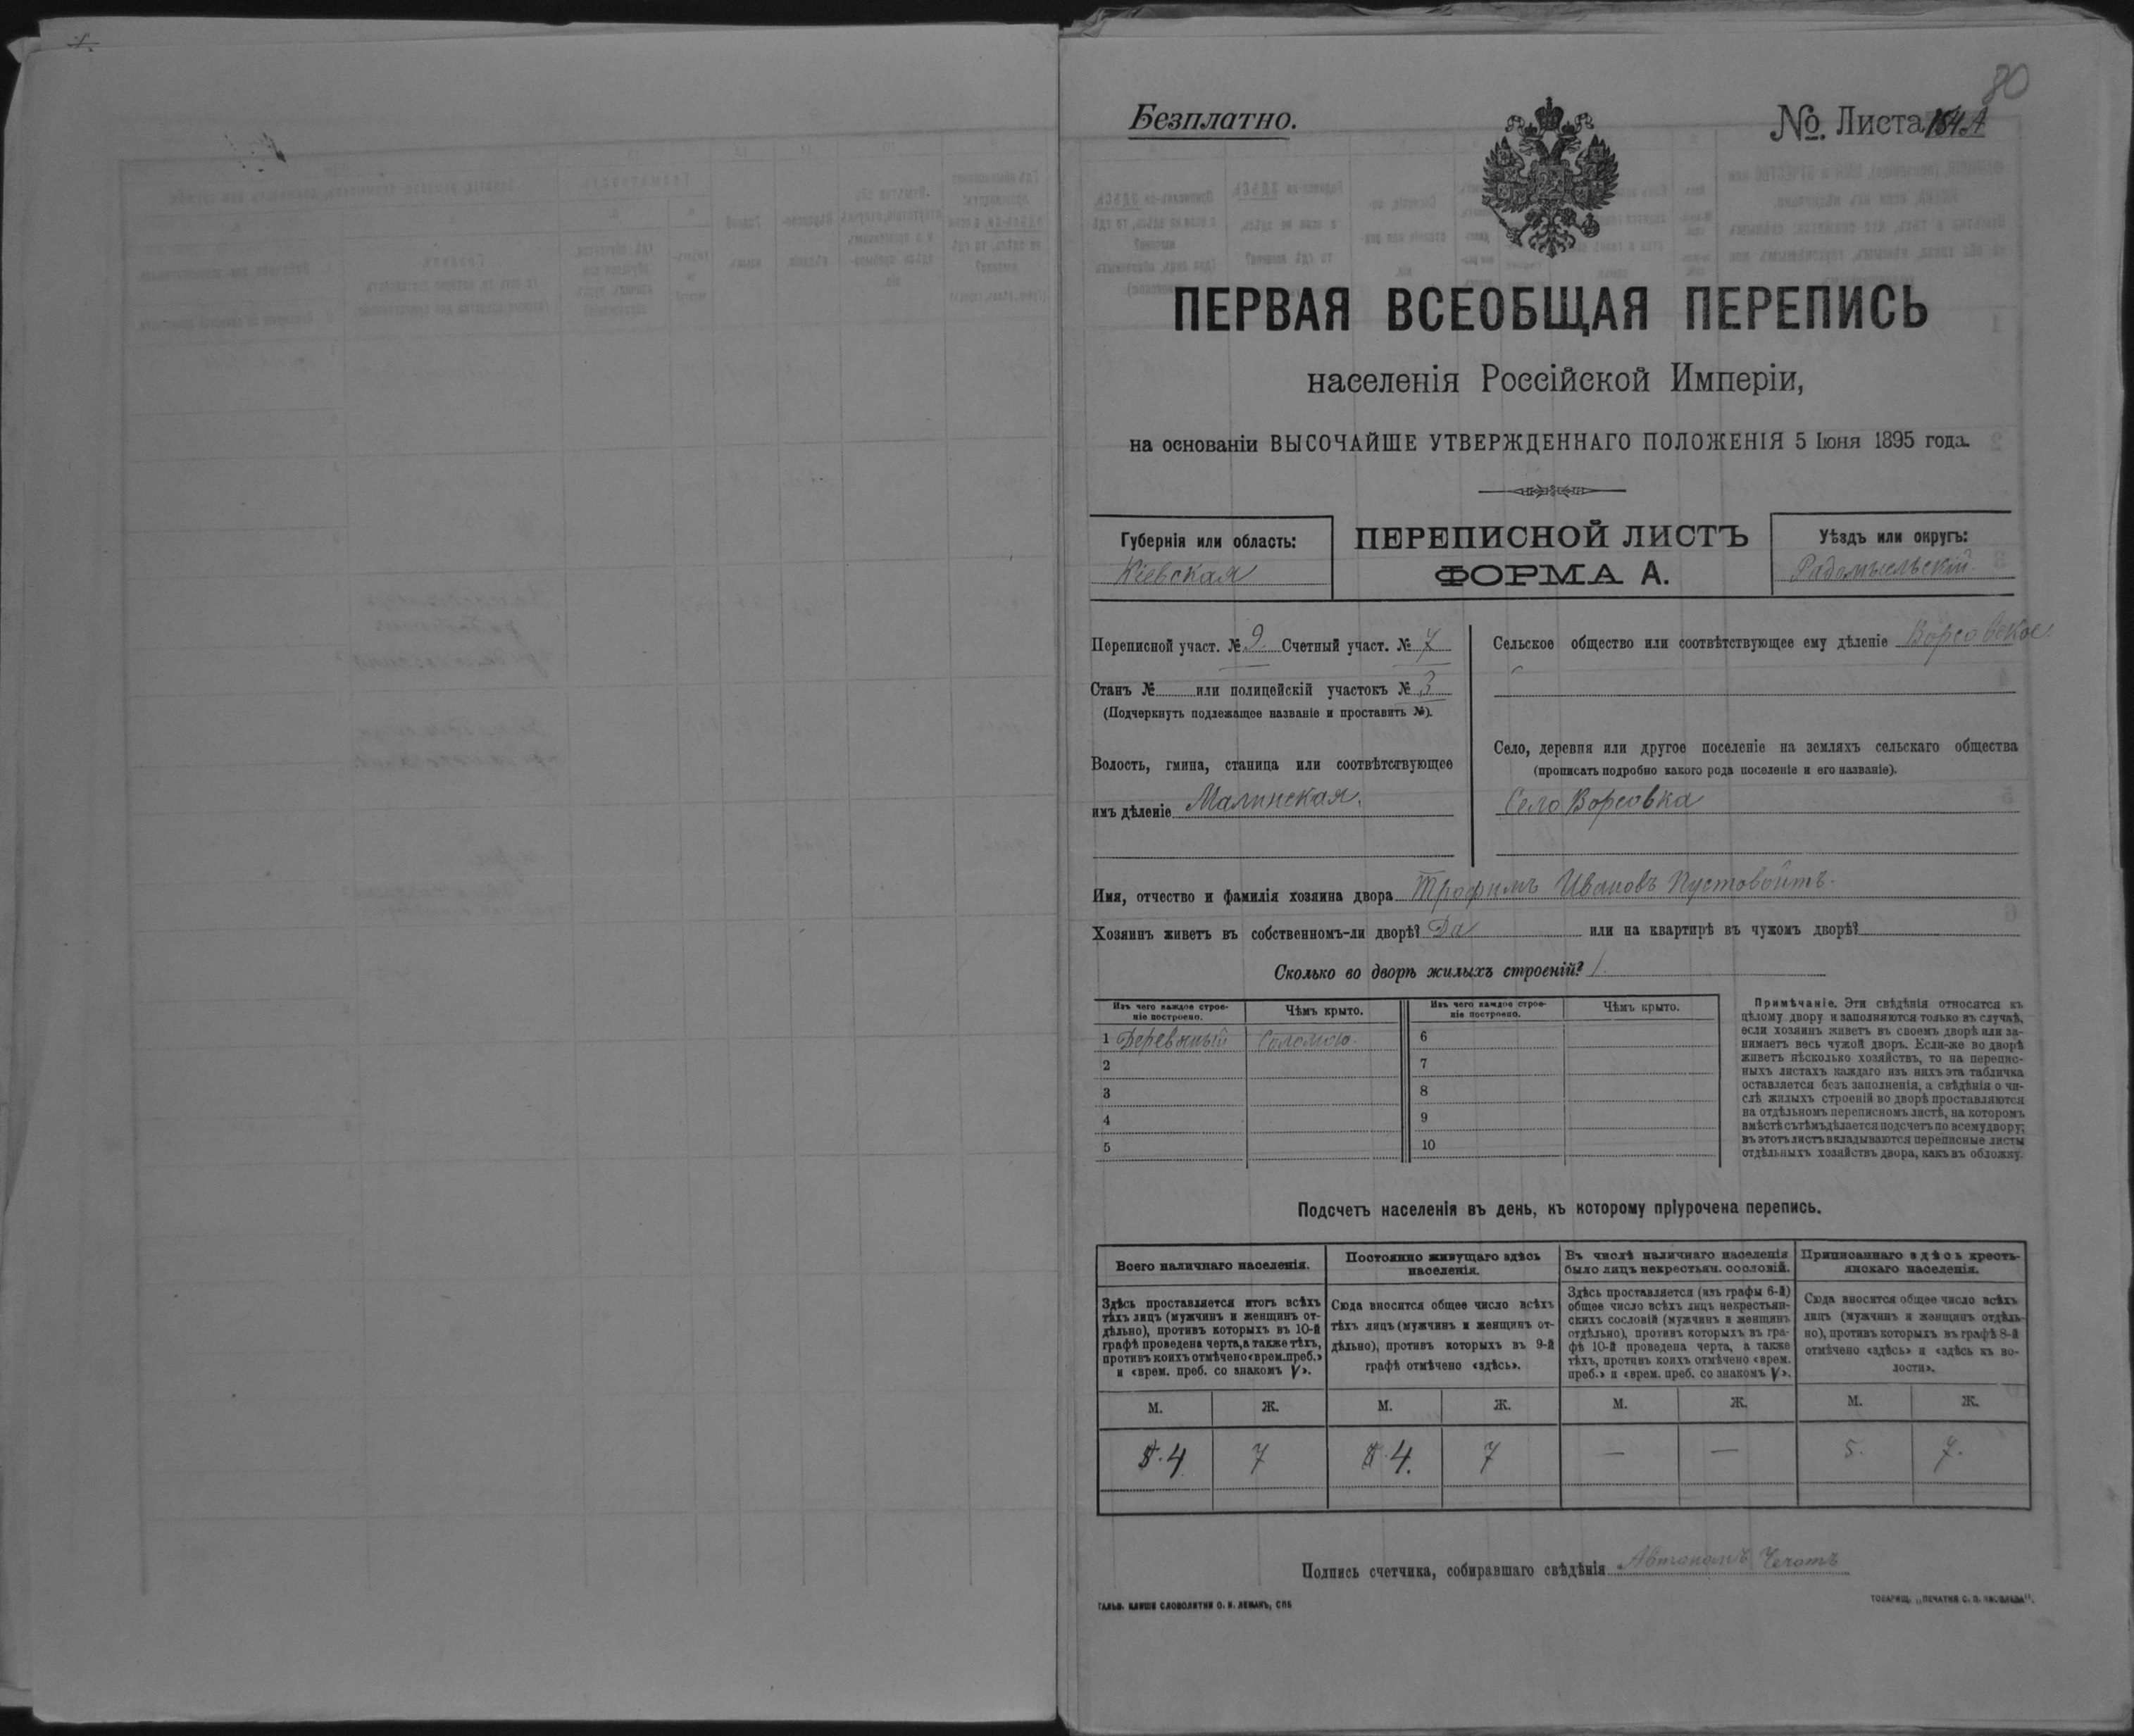 80
Безплатно.
№. Листа 184 А
ПЕРВАЯ ВСЕОБЩАЯ ПЕРЕПИСЬ
населенія Россійской Имперіи,
на основаніи ВЫСОЧАЙШЕ УТВЕРЖДЕННАГО ПОЛОЖЕНІЯ 5 Іюня 1895 года.
Губернія или область:
Кіевская
ПЕРЕПИСНОЙ ЛИСТЪ
ФОРМА А.
Уѣздъ или округъ:
Радомысльскій
Переписной участ. № 9. Счетный участ. № 7
Станъ № или полицейскій участокъ № 3
(Подчеркнуть подлежащее названіе и проставить №).
Волость, гмина, станица или соотвѣтствующее
имъ дѣленіе Малинская.
Сельское общество или соотвѣтствующее ему дѣленіе Ворсовское
Село, деревня или другое поселеніе на земляхъ сельскаго общества
(прописать подробно какого рода поселеніе и его названіе).
Село Ворсовка
Имя, отчество и фамилія хозяина двора Трофимъ Ивановъ Пустовойтъ.
Хозяинъ живетъ въ собственномъ-ли дворѣ? Да или на квартирѣ въ чужомъ дворѣ?
Сколько во дворѣ жилыхъ строеній? 1.
Изъ чего каждое строе-
ніе построено.
Чѣмъ крыто.
Изъ чего каждое строе-
ніе построено.
Чѣмъ крыто.
1 Деревяный Соломою. 6
2 7
3 8
4 9
5 10
Примѣчаніе. Эти свѣдѣнія относятся къ
цѣлому двору и заполняются только въ случаѣ,
если хозяинъ живетъ въ своемъ дворѣ или за-
нимаетъ весь чужой дворъ. Если-же во дворѣ
живетъ нѣсколько хозяйствъ, то на перепис-
ныхъ листахъ каждаго изъ нихъ эта табличка
оставляется безъ заполненія, а свѣдѣнія о чи-
слѣ жилыхъ строеній во дворѣ проставляются
на отдѣльномъ переписномъ листѣ, на которомъ
вмѣстѣ съ тѣмъ дѣлается подсчетъ по всему двору;
въ этотъ листъ вкладываются переписные листы
отдѣльныхъ хозяйствъ двора, какъ въ обложку.
Подсчетъ населенія въ день, къ которому пріурочена перепись.
Всего наличнаго населенія.
Здѣсь проставляется итогъ всѣхъ
тѣхъ лицъ (мужчинъ и женщинъ от-
дѣльно), противъ которыхъ въ 10-й
графѣ проведена черта, а также тѣхъ,
противъ коихъ отмѣчено «врем. преб.»
и «врем. преб. со знакомъ V».
Постоянно живущаго здѣсь
населенія.
Сюда вносится общее число всѣхъ
тѣхъ лицъ (мужчинъ и женщинъ от-
дѣльно), противъ которыхъ въ 9-й
графѣ отмѣчено «здѣсь».
Въ числѣ наличнаго населенія
было лицъ некрестьян. сословій.
Здѣсь проставляется (изъ графы 6-й)
общее число всѣхъ лицъ некрестьян-
скихъ сословій (мужчинъ и женщинъ
отдѣльно), противъ которыхъ въ гра-
фѣ 10-й проведена черта, а также
тѣхъ, противъ коихъ отмѣчено «врем.
преб.» и «врем. преб. со знакомъ V».
Приписаннаго здѣсь кресть-
янскаго населенія.
Сюда вносится общее число всѣхъ
лицъ (мужчинъ и женщинъ отдѣль-
но), противъ которыхъ въ графѣ 8-й
отмѣчено «здѣсь» и «здѣсь къ во-
лости».
М. Ж. М. Ж. М. Ж. М. Ж.
5. 4 7 5. 4. 7 — — 5. 7.
Подпись счетчика, собиравшаго свѣдѣнія Автономъ Чечотъ
ГАЛЬВ. КЛИШЕ СЛОВОЛИТНИ О. И. ЛЕМАНЪ, СПБ
ТОВАРИЩ. „ПЕЧАТНЯ С. П. ЯКОВЛЕВА".